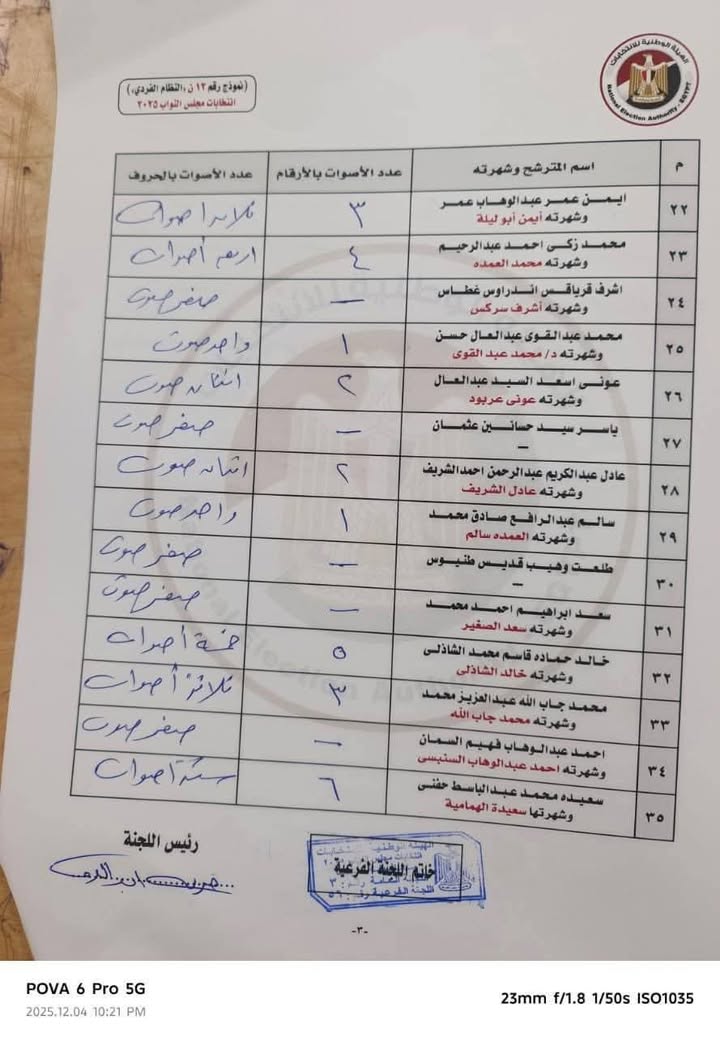 الهيئة الوطنية للانتخابات
National Election Authority - EGYPT
(نموذج رقم ١٢ ن «النظام الفردي»)
انتخابات مجلس النواب ٢٠٢٥
م اسم المترشح وشهرته عدد الأصوات بالأرقام عدد الأصوات بالحروف
٢٢ ايمن عمر عبدالوهاب عمر ٣ ثلاثة أصوات
وشهرته أيمن أبو ليلة
٢٣ محمد زكى احمد عبدالرحيم ٤ اربعه أصوات
وشهرته محمد العمده
٢٤ اشرف قرياقس اندراوس غطاس — صفر صوت
وشهرته أشرف سركس
٢٥ محمد عبدالقوى عبدالعال حسن ١ واحد صوت
وشهرته د/ محمد عبد القوى
٢٦ عونى اسعد السيد عبدالعال ٢ اثنان صوت
وشهرته عونى عربود
٢٧ ياسر سيد حسانين عثمان — صفر صوت
–
٢٨ عادل عبدالكريم عبدالرحمن احمد الشريف ٢ اثنان صوت
وشهرته عادل الشريف
٢٩ سالم عبدالرافع صادق محمد ١ واحد صوت
وشهرته العمده سالم
٣٠ طلعت وهيب قديس طنيوس — صفر صوت
–
٣١ سعد ابراهيم احمد محمد — صفر صوت
وشهرته سعد الصغير
٣٢ خالد حماده قاسم محمد الشاذلى ٥ خمسة أصوات
وشهرته خالد الشاذلى
٣٣ محمد جاب الله عبدالعزيز محمد ٣ ثلاثة أصوات
وشهرته محمد جاب الله
٣٤ احمد عبدالوهاب فهيم السمان — صفر صوت
وشهرته احمد عبدالوهاب السنبسى
٣٥ سعيده محمد عبدالباسط حفنى ٦ ستة أصوات
وشهرتها سعيدة الهمامية
رئيس اللجنة
خاتم اللجنة الفرعية
-٣-
POVA 6 Pro 5G
2025.12.04 10:21 PM
23mm f/1.8 1/50s ISO1035